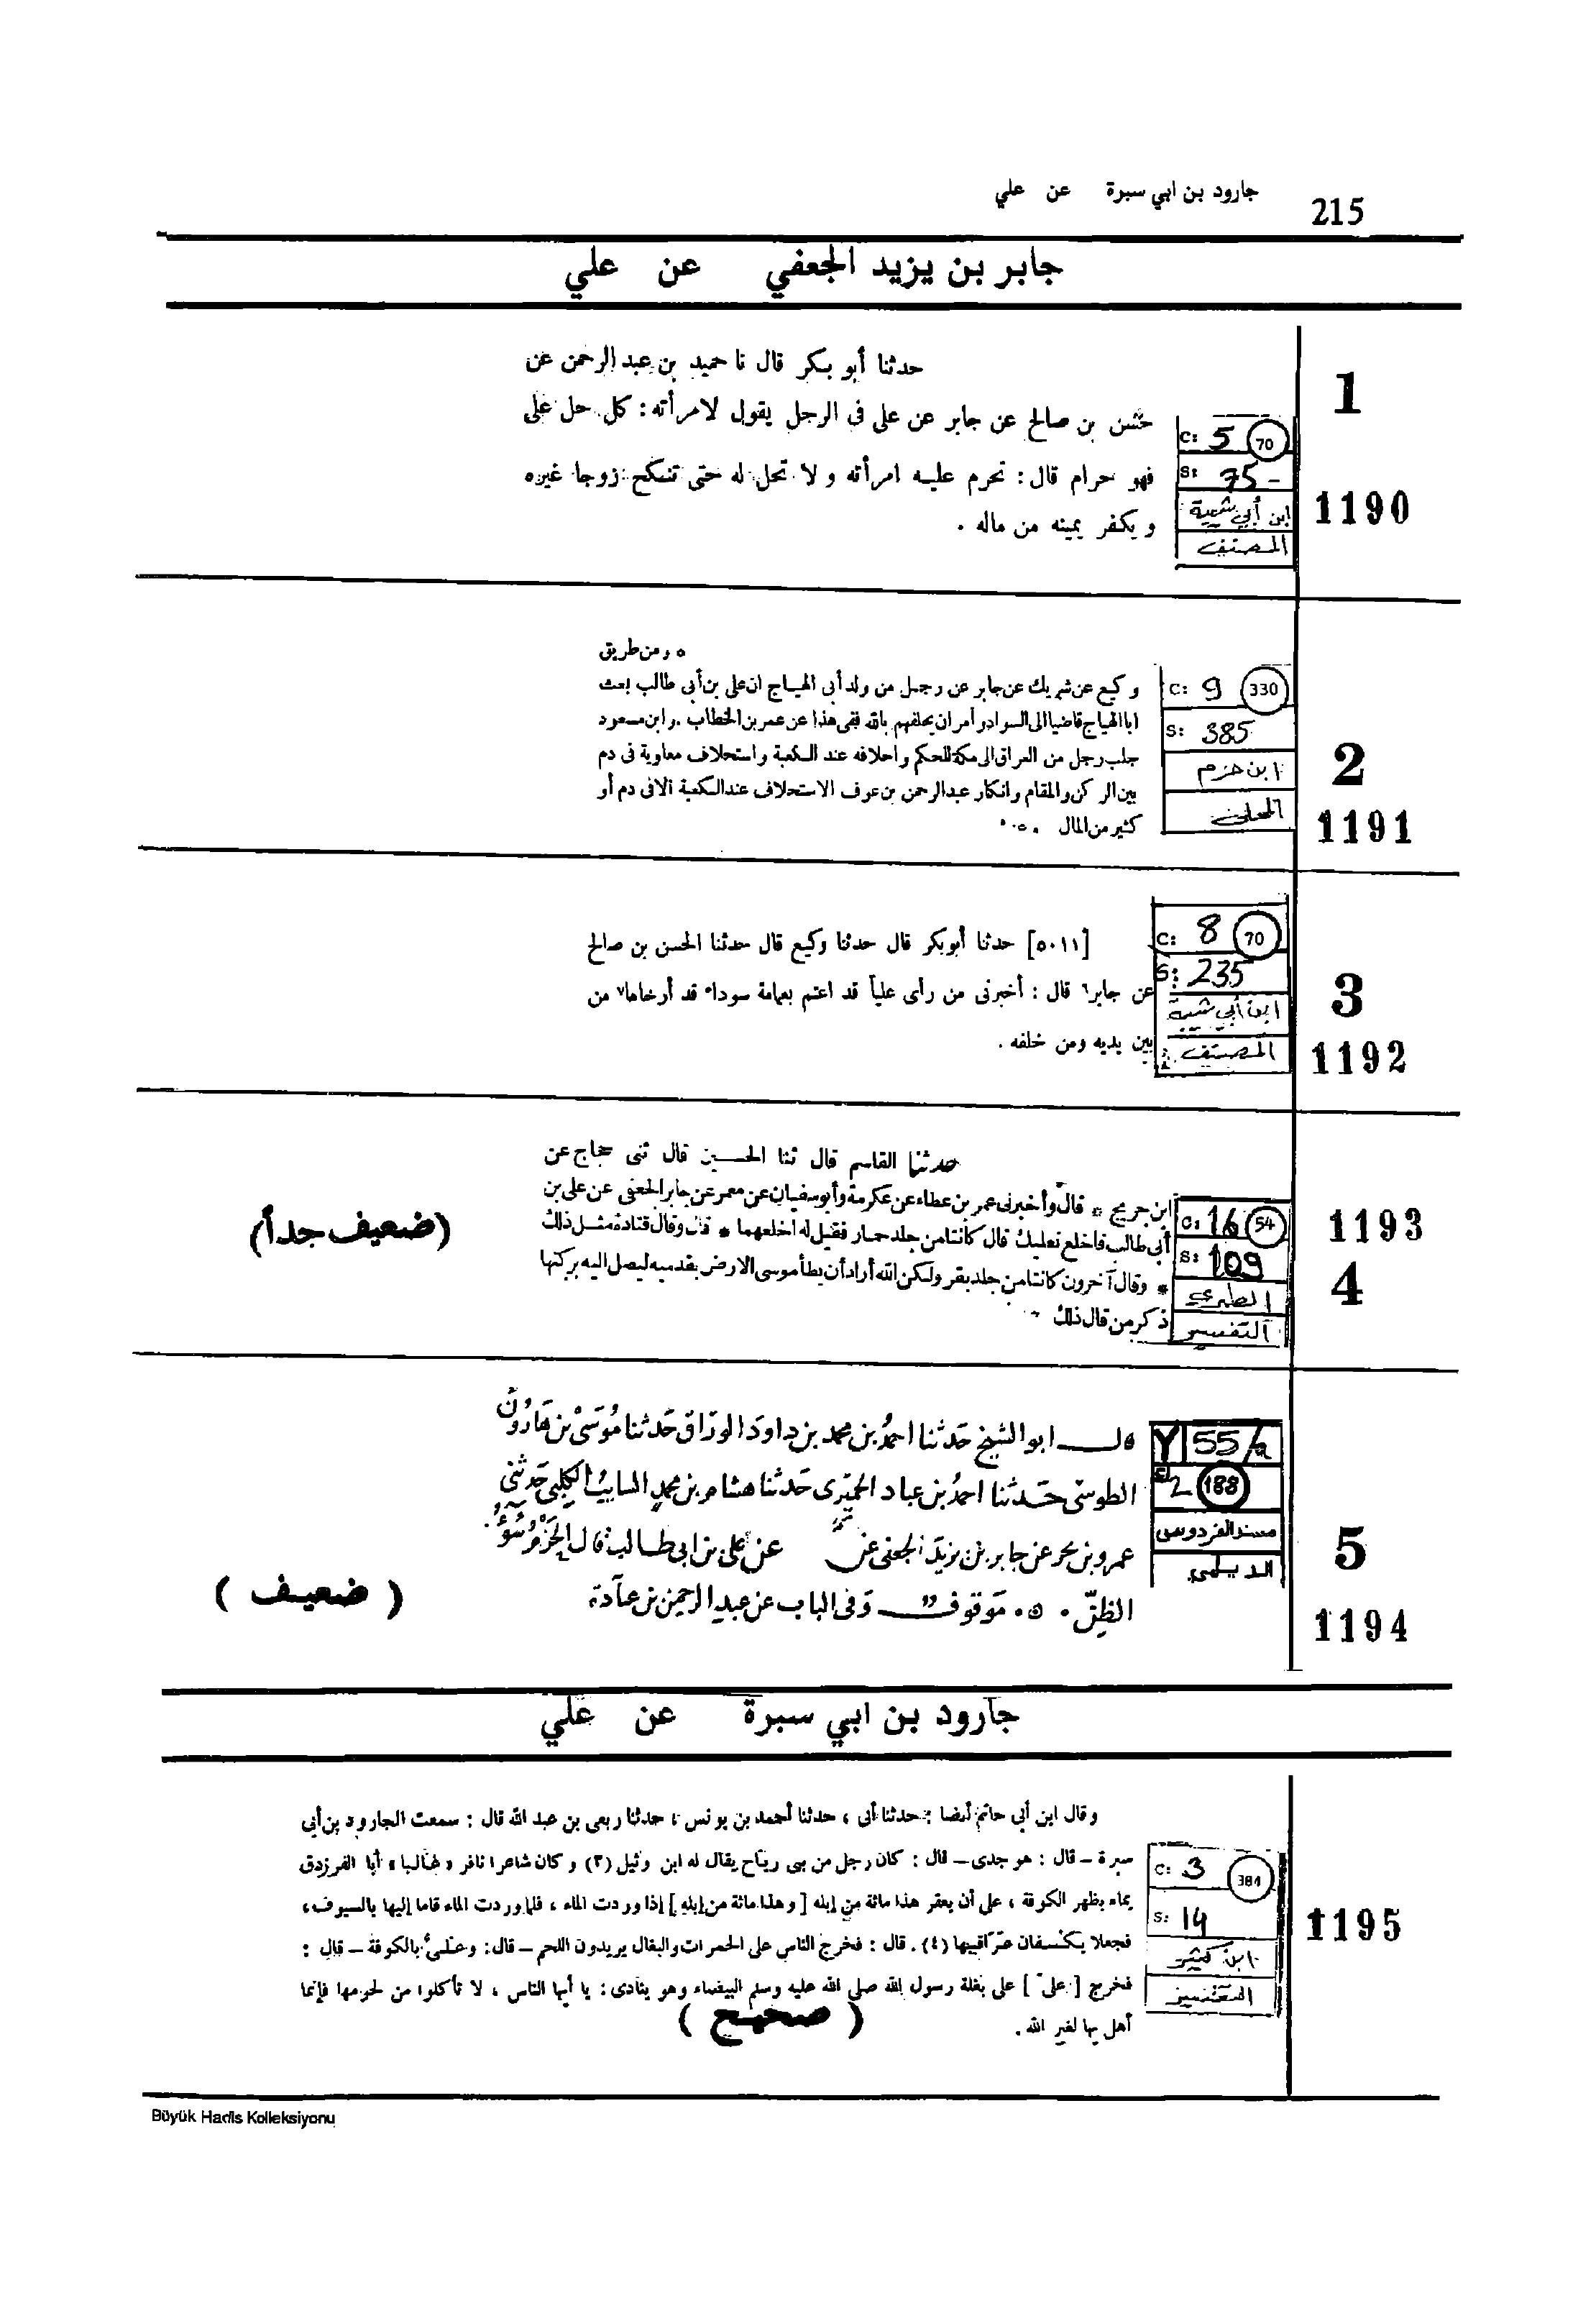 جارود بن ابي سبرة عن علي
215
جابر بن يزيد الجعفي عن علي
1
حدثنا أبو بكر قال نا حميد بن عبد الرحمن عن
حسن بن صالح عن جابر عن على فى الرجل يقول لامرأته: كل حل على
فهو حرام قال: تحرم عليه امرأته و لا تحل له حتى تنكح زوجا غيره
و يكفر يمينه من ماله .
C: 5 70
S: 75 -
ابن أبي شيبة
المصنف
1190
ه ومن طريق
وكيع عن شريك عن جابر عن رجل من ولد أبى الهياج ان على بن أبى طالب بعث
ابا الهياج قاضيا الى السواد وأمر ان يحلفهم بالله ففى هذا عن عمر بن الخطاب . وابن مسعود
جلب رجل من العراق الى مكة للحكم واحلافه عند الكعبة واستحلاف معاوية فى دم
بين الركن والمقام وانكار عبد الرحمن بن عوف الاستحلاف عند الكعبة الا فى دم أو
كثير من المال .
C: 9 330
S: 385
ابن حزم
المحلى
2
1191
[٥٠١١] حدثنا أبوبكر قال حدثنا وكيع قال حدثنا الحسن بن صالح
عن جابر٦ قال : أخبرنى من رأى علياً قد اعتم بعمامة سوداء قد أرخاها٧ من
بين يديه ومن خلفه .
C: 8 70
S: 235
ابن أبي شيبة
المصنف
3
1192
حدثنا القاسم قال ثنا الحسين قال ثنى حجاج عن
ابن جريج * قال وأخبرنى عمر بن عطاء عن عكرمة وأبو سفيان عن معمر عن جابر الجعفى عن على بن
أبى طالب فاخلع نعليك قال كانتا من جلد حمار فقيل له اخلعهما * قال وقال قتادة مثل ذلك
* وقال آخرون كانتا من جلد بقر ولكن الله أراد أن يطأ موسى الارض بقدميه ليصل اليه بركتها
ذكر من قال ذلك
(ضعيف جداً)
C: 16 54
S: 109
الطبري
التفسير
1193
4
قال ابو الشيخ حدثنا احمد بن محمد بن داود الوراق حدثنا موسى بن هارون
الطوسى حدثنا احمد بن عباد الحميرى حدثنا هشام بن محمد السايب الكلبى حدثنى
عمرو بن بحر عن جابر بن يزيد الجعفى عن عن على بن ابى طالب قال الحزم سوء
الظن . ه . موقوف وفى الباب عن عبد الرحمن بن
( ضعيف )
Y 55/a
2 188
مسند الفردوس
الديلمي
5
1194
جارود بن ابي سبرة عن علي
وقال ابن أبى حاتم أيضا : حدثنا أبى ، حدثنا أحمد بن يونس ، حدثنا ربعى بن عبد الله قال : سمعت الجارود بن أبى
سبرة – قال : هو جدى – قال : كان رجل من بنى رياح يقال له ابن وثيل (٣) وكان شاعرا نافر « غالبا » أبا الفرزدق
بماء بظهر الكوفة ، على أن يعقر هذا مائة من إبله [ وهذا مائة من إبله ] إذا وردت الماء ، فلما وردت الماء قاما إليها بالسيوف ،
فجعلا يكسفان عراقيبها (٤) . قال : فخرج الناس على الحمرات والبغال يريدون اللحم – قال : وعلىّ بالكوفة – قال :
فخرج [ علىّ ] على بغلة رسول الله صلى الله عليه وسلم البيضاء وهو ينادى : يا أيها الناس ، لا تأكلوا من لحومها فإنما
أهل بها لغير الله .
( صحيح )
C: 3 381
S: 14
ابن كثير
التفسير
1195
Büyük Hadis Kolleksiyonu